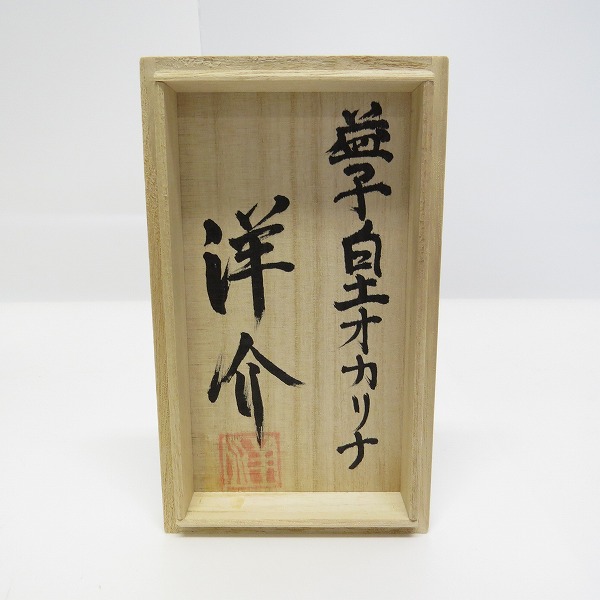 益子白土オカリナ
洋介
洋